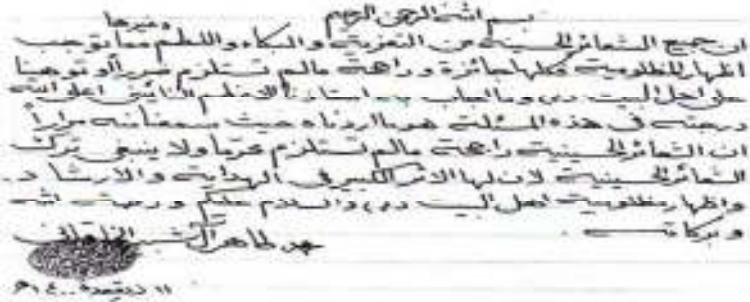 بسم الله الرحمن الرحيم
ان جميع الشعائر الحسينية من التعزية والبكاء واللطم وغيرها مما توجب
اظهار المظلومية فكلها جائزة وراجحة مالم تستلزم ضرراً او توهيناً
على اهل البيت (ع) وما اجاب به استاذنا الاعظم النائيني اعلى الله
درجته في هذه المسئلة هو ما اردناه حيث سمعنا منه مراراً
ان الشعائر الحسينية راجحة مالم تستلزم محرما ولا ينبغي ترك
الشعائر الحسينية لان لها الاثر الكبير في الهداية والارشاد
واظهار مظلومية اهل البيت (ع) والسلام عليكم ورحمة الله
وبركاته
محمد طاهر آل شبير الخاقاني
١١ ذيقعدة ١٤٠٠ هـ